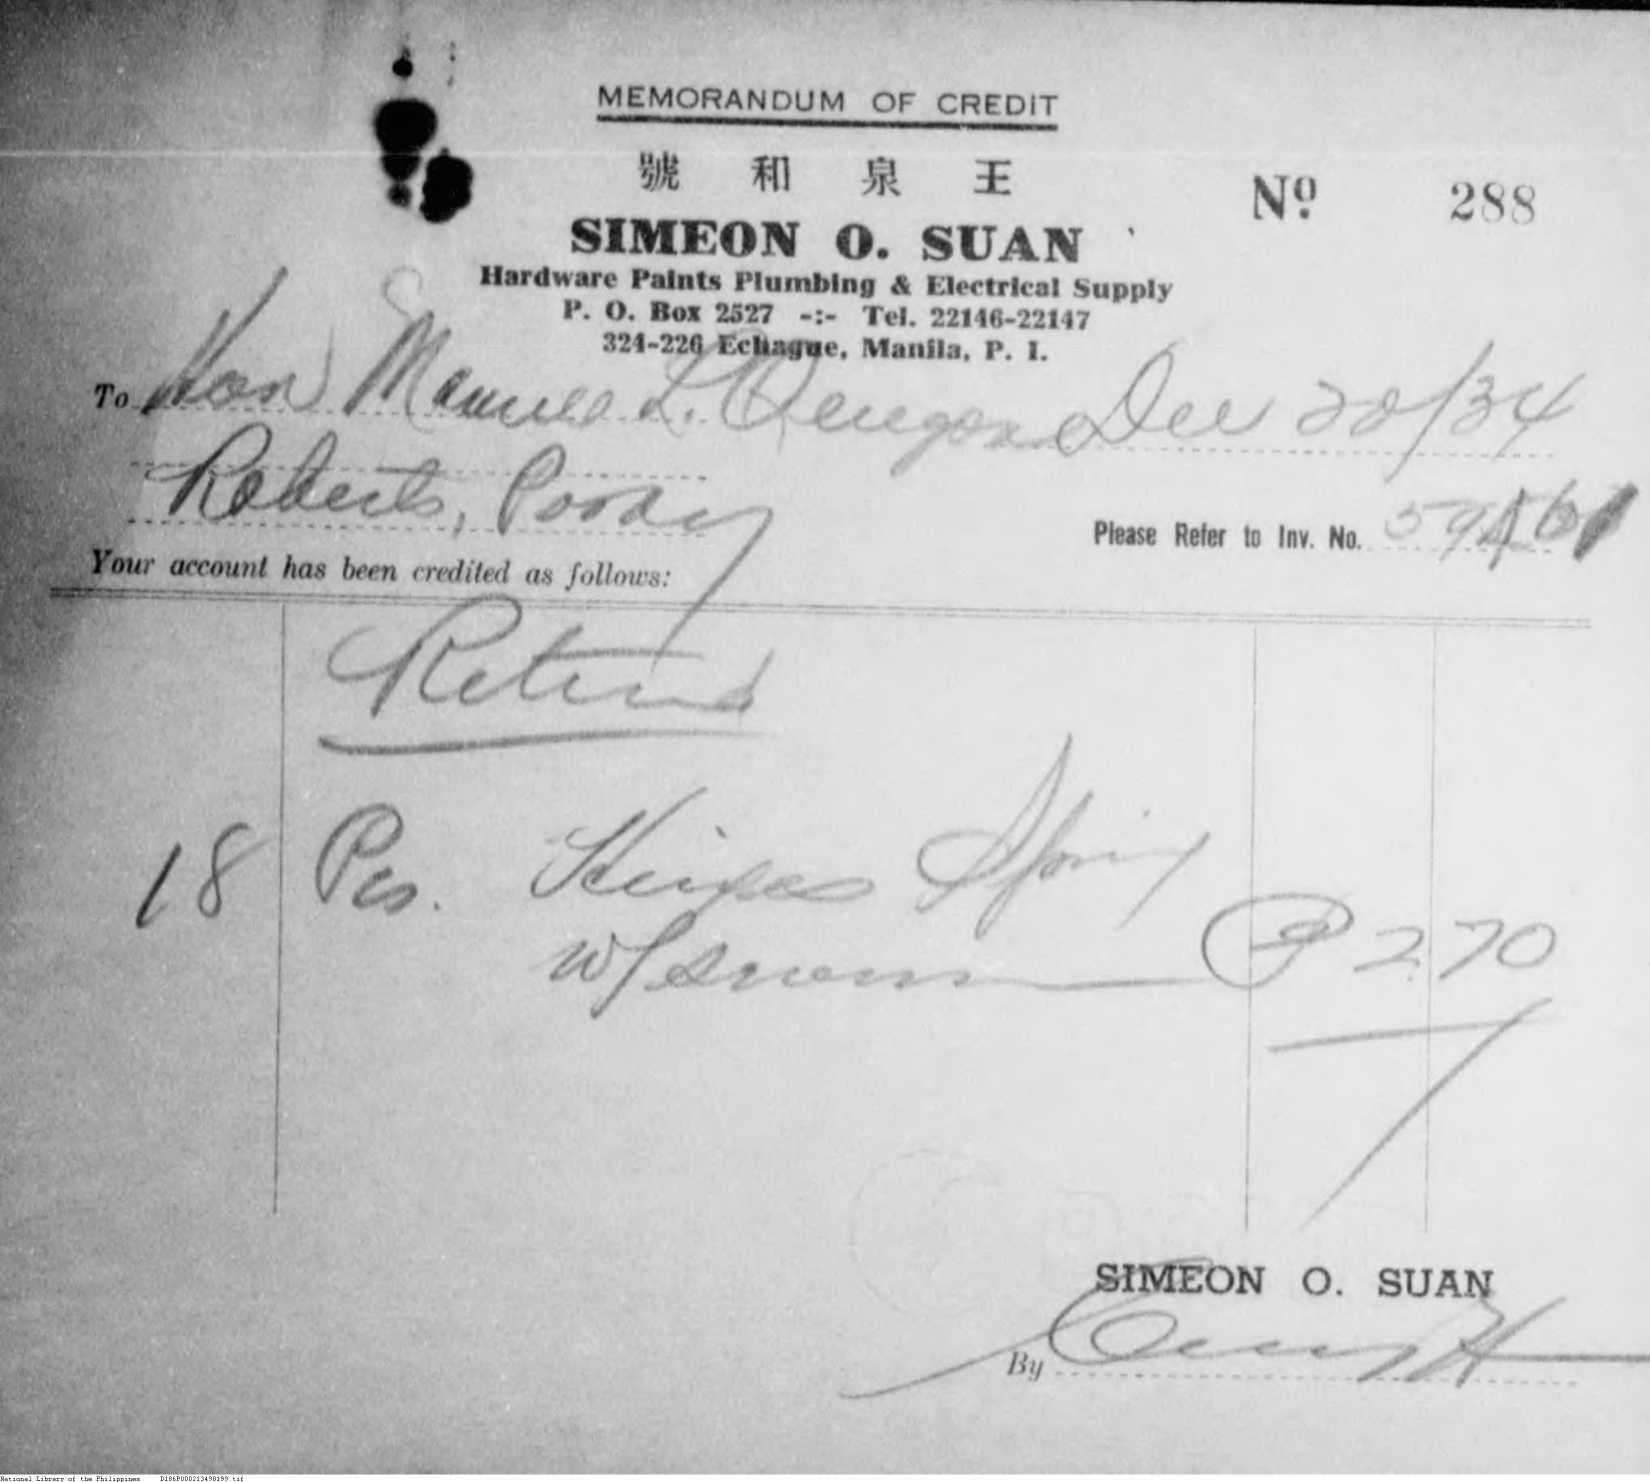 MEMORANDUM OF CREDIT
號 和 泉 王
Nº 288
SIMEON O. SUAN
Hardware Paints Plumbing & Electrical Supply
P. O. Box 2527 -:- Tel. 22146-22147
324-226 Echague, Manila, P. I.
To Hon Manuel L. Quezon Dec 20/34
Roberts, Pasay
Please Refer to Inv. No.
Your account has been credited as follows:
Returned
18 Pcs. Hinges Spring
w/ screws ₱ 2.70
SIMEON O. SUAN
By
National Library of the Philippines D186P000213498199.tif